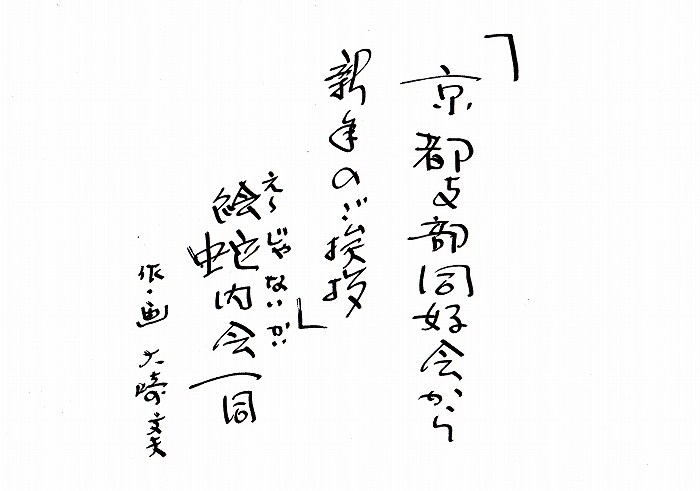 「京都支部同好会から
新年のご挨拶」
え〜じゃないが
絵蛇内会一同
作・画 大崎文夫